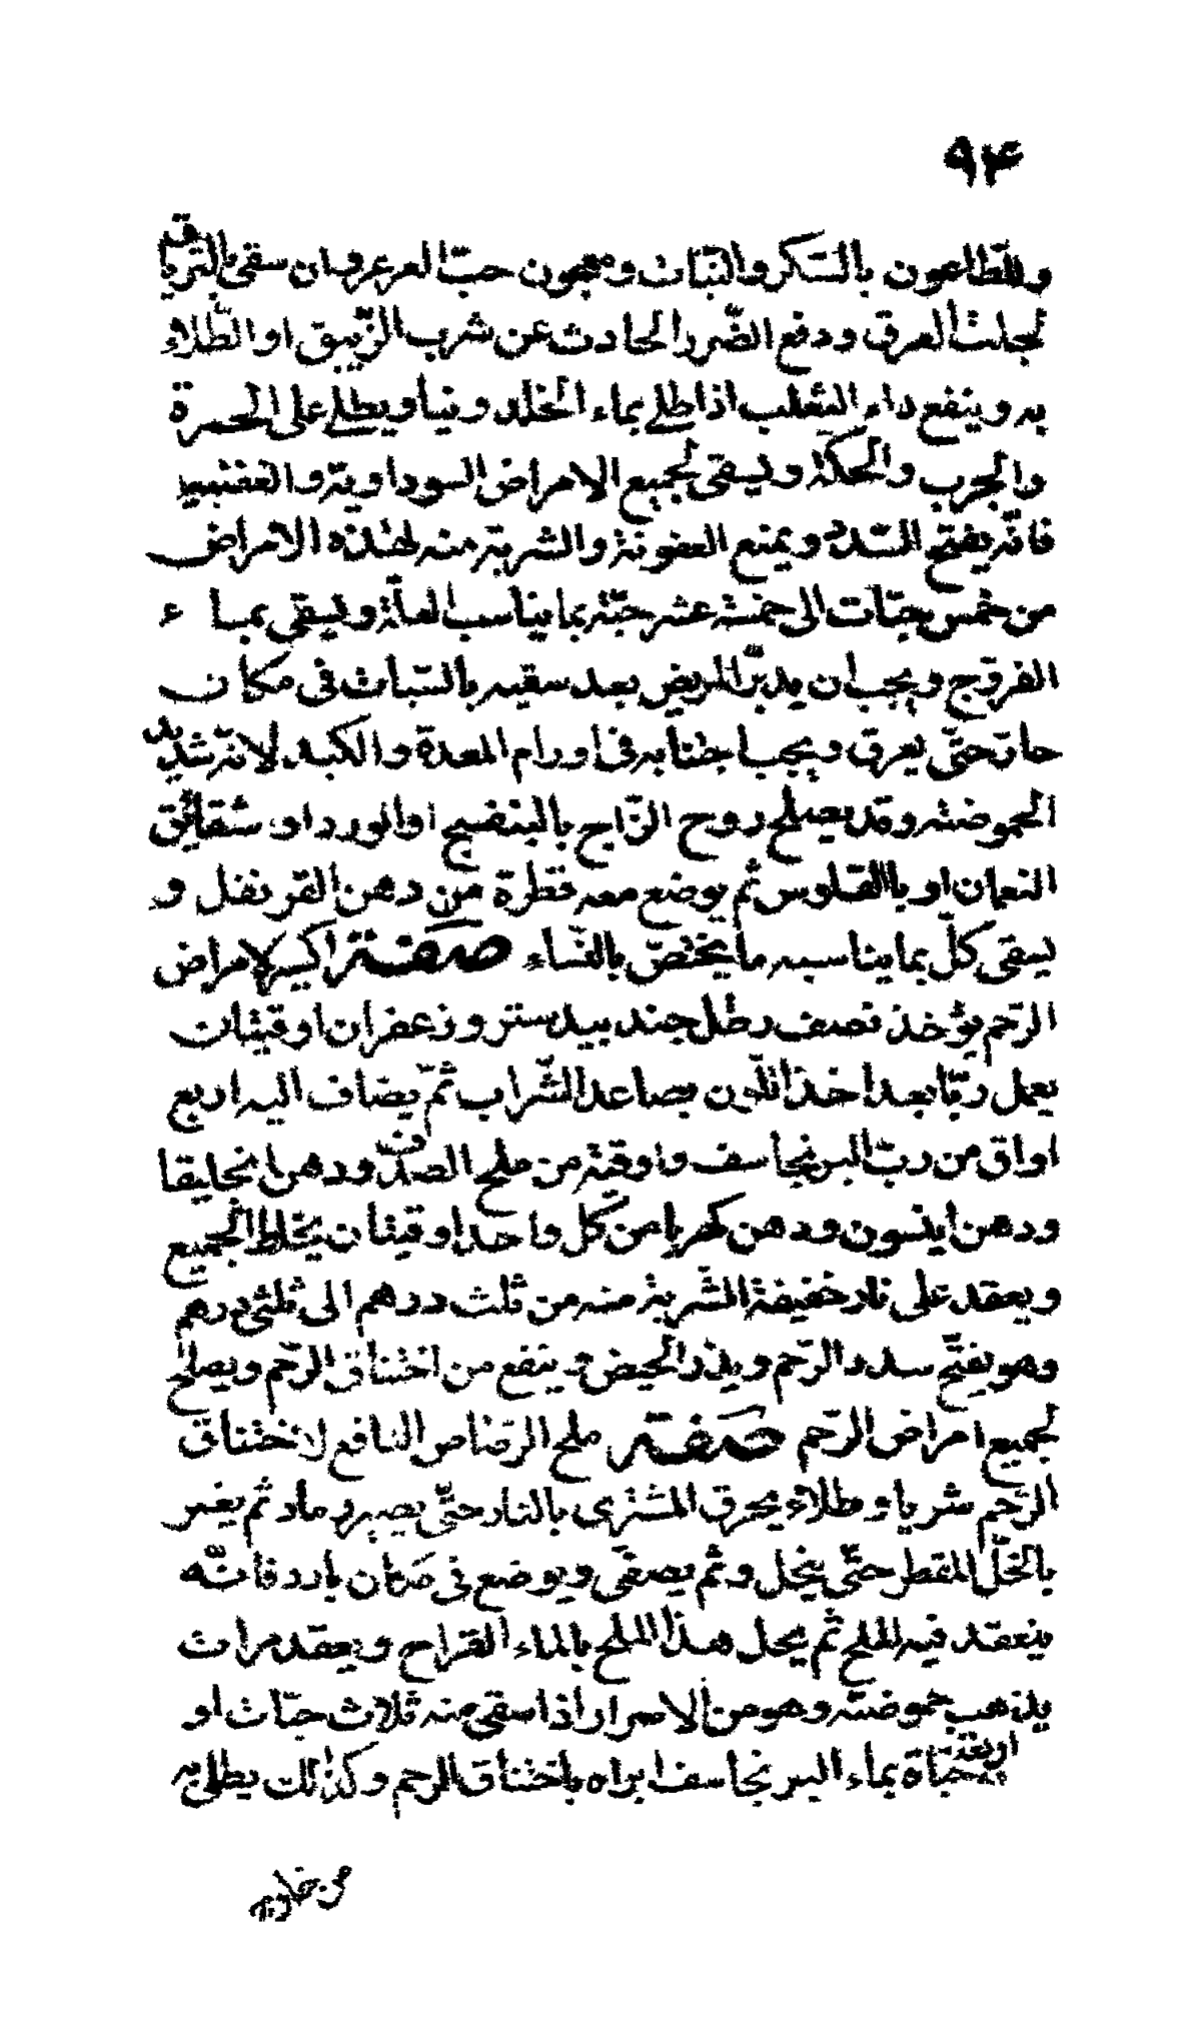 ۹۴
وللطاعون بالسّكر والنّبات ومعجون حبّ العرعر وان سقى بالترياق
لجلب العرق ودفع الضّرر الحادث عن شرب الزّيبق او الطّلاء
به وينفع داء الثعلب اذا طلى بماء الخلد ونيا ويطلى على الحمرة
والجرب والحكّة ويسقى لجميع الامراض السوداويّة والعفنيه
فانّه يفتح السّدد ويمنع العفونة والشربة منه لهٰذه الامراض
من خمس حبّات الى خمسة عشر حبّة بما يناسب العلّة ويسقى بماء
الفرّوج ويجب ان يدبّر المريض بعد سقيه بالسّبات فى مكان
حارّ حتّى يعرق ويجب اجتنابه فى اورام المعدة والكبد لانّه شديد
الحموضة وقد يصلح روح الزّاج بالبنفسج او الورد او شقائق
النعمان او بالقلوس ثمّ يوضع معه قطرة من دهن القرنفل و
يسقى كلّ بما يناسبه ما يختصّ بالنّساء صفة اكسير لامراض
الرّحم يؤخذ نصف رطل جند بيدستر وزعفران اوقيتان
يعمل ربّا بعد اخذ اللّون بصاعد الشّراب ثمّ يضاف اليه اربع
اواق من ربّ البرنجاسف واوقيّة من ملح الصدف ودهن انجليقا
ودهن اينسون ودهن كهربا من كلّ واحد اوقيتان يخلط الجميع
ويعقد على نار خفيفة الشّربة منه من ثلث درهم الى ثلثى درهم
وهو يفتّح سدد الرّحم ويدرّ الحيض وينفع من اختناق الرّحم ويصلح
لجميع امراض الرّحم صفة ملح الرّصاص النافع لاختناق
الرّحم شربا وطلاء يحرق المشترى بالنار حتّى يصير رماد ثم يغمر
بالخلّ المقطر حتّى ينحل وثم يصفى ويوضع فى مكان بارد فانّه
ينعقد فيه الملح ثم يحل هذا الملح بالماء القراح ويعقد مرات
يذهب حموضته وهو من الاسرار اذا سقى منه ثلاث حبّات او
اربعة حبّاة بماء البرنجاسف ابراه باختناق الرحم وكذلك يطلى به